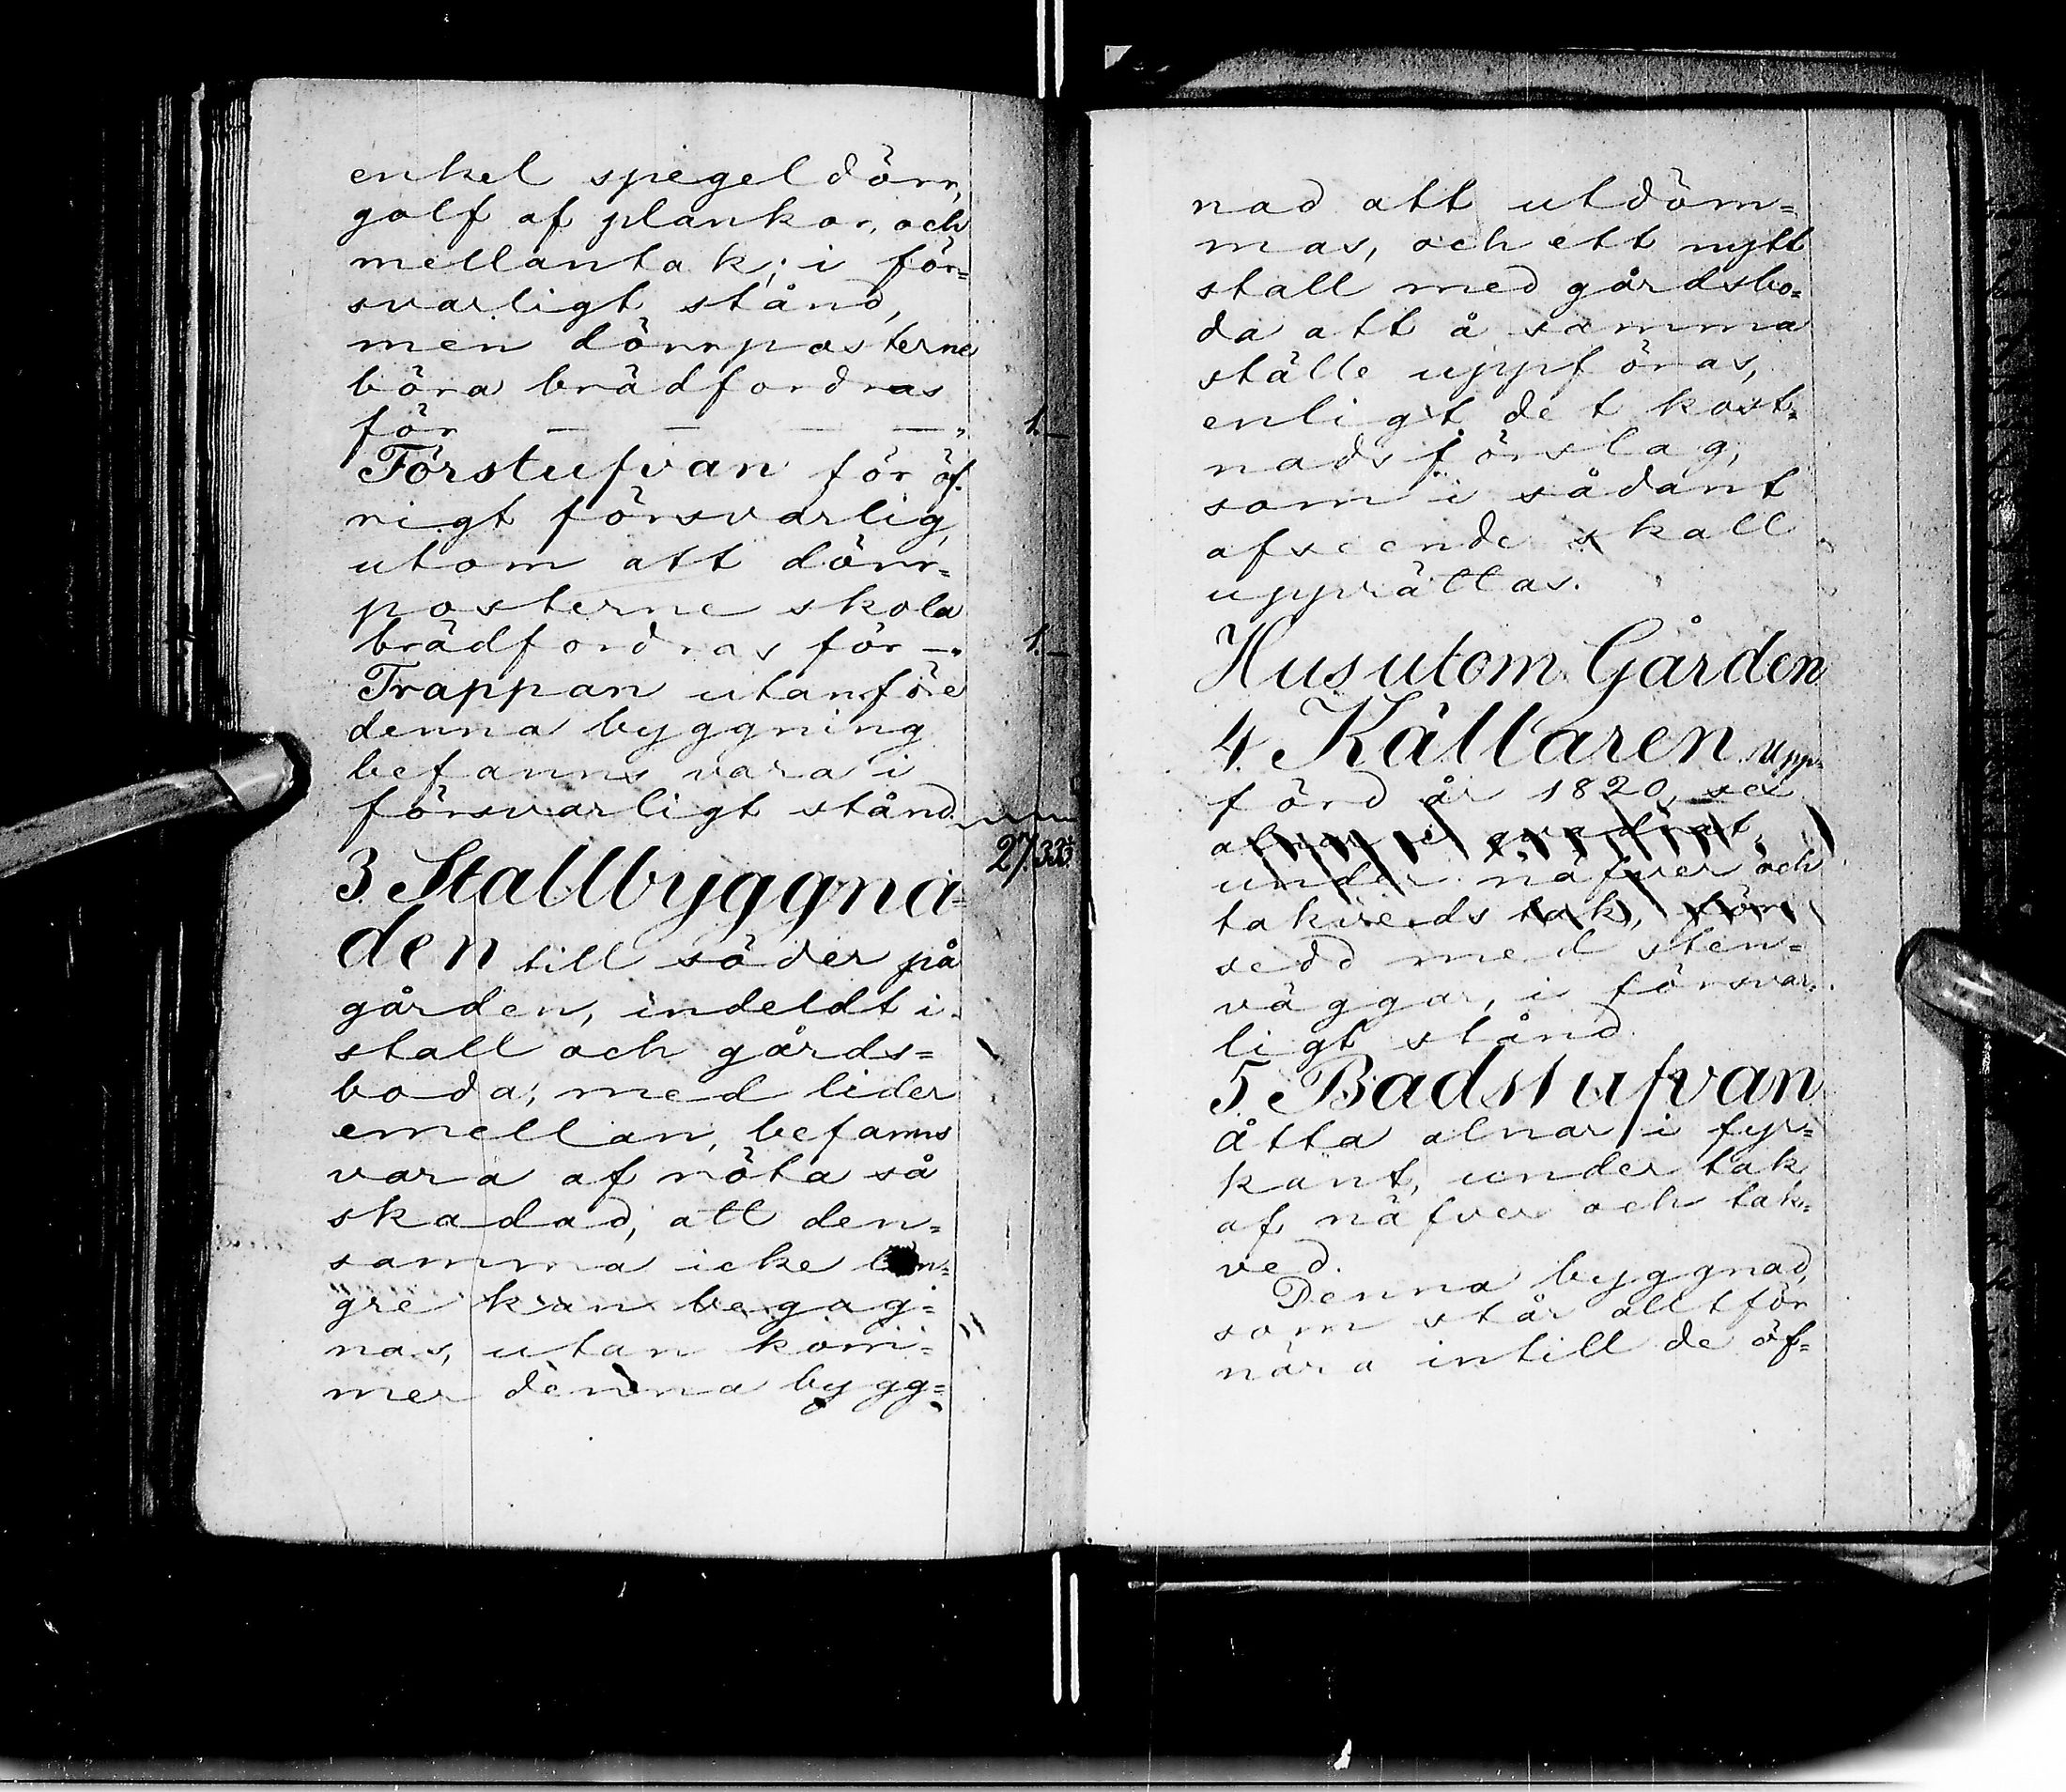 enkel spegeldörr,
golf af plankor, och
mellantak; i för=
svarligt stånd,
men dörrposterne
böra brädfordras
för — — — —„ 1.—
Förstufvan för öf.
rigt försvarlig,
utom att dörr=
posterne skola
brädfordras för —„ 1.—
Trappan utanföre
denna byggning
befanns vara i
försvarligt stånd.
27.335
3. Stallbyggna=
den till söder på
gården, indeldt i
stall och gårds=
boda, med lider
emellan, befanns
vara af röta så
skadad, att den=
samma icke län=
gre kan begag=
nas, utan kom=
mer denna bygg=
nad att utdöm=
mas, och ett nytt
stall med gårdsbo=
da att å samma
ställe uppföras,
enligt det kost=
nadsförslag,
som i sådant
afseende skall
upprättas.
Hus utom Gården
4. Källaren upp=
förd år 1820, sex
alnar i quadrat,
under näfver och
takveds tak, för=
sedd med sten=
väggar, i försvar=
ligt stånd.
5. Badstufvan
åtta alnar i fyr=
kant, under tak
af näfver och tak=
ved.
Denna byggnad,
som står alltför
nära intill de öf=